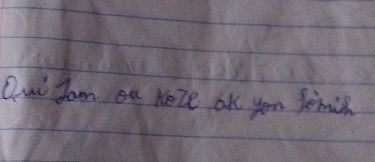 Oui Jam ou koze ak yon Sèmin